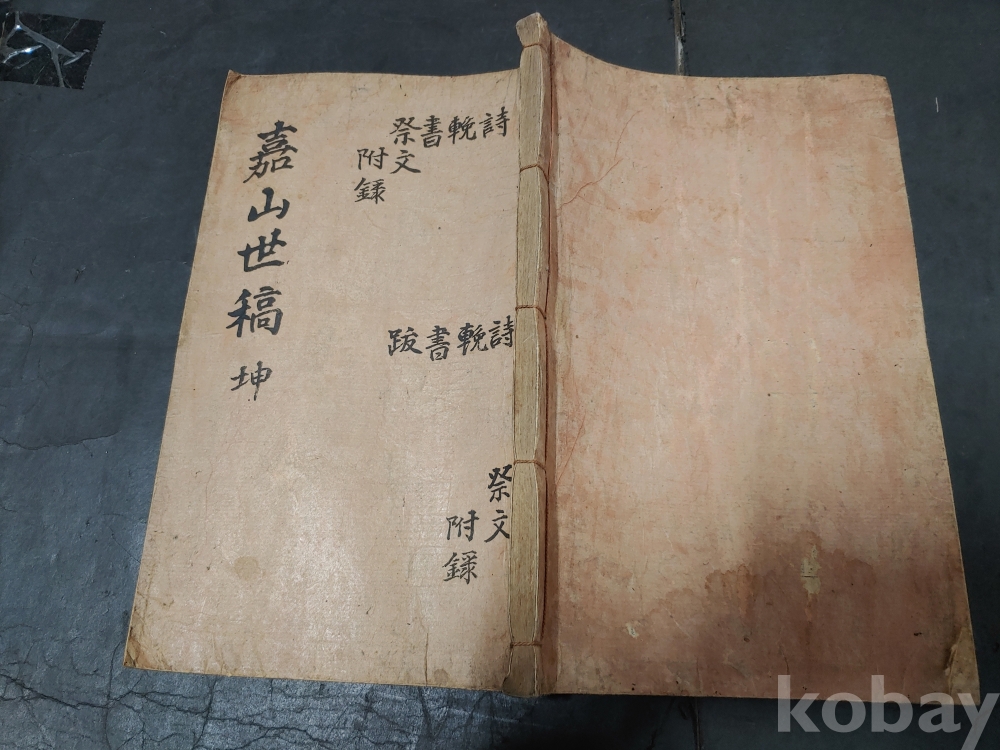 嘉山世稿 坤
詩
輓
書
祭文
附錄
詩
輓
書
跋
祭文
附錄
kobay